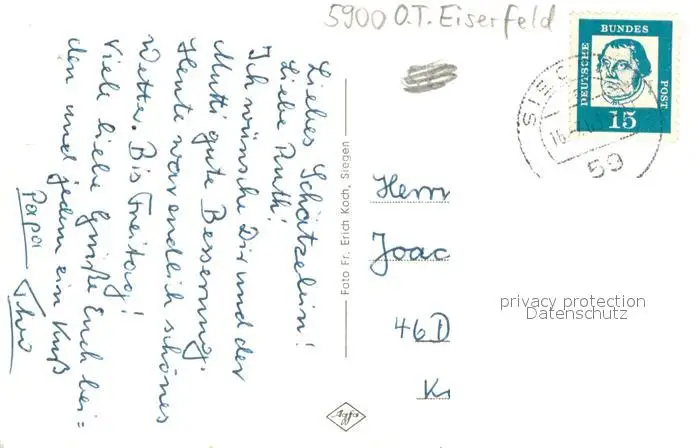 5900 O.T. Eiserfeld
Liebes Schätzelein!
Liebe Ruth!
Ich wünsche Dir und der
Mutti gute Besserung.
Heute war endlich schönes
Wetter. Bis Freitag!
Viele liebe Grüße Euch bei=
den und jedem ein Kuß
Papa
Foto Fr. Erich Koch, Siegen
Agfa
DEUTSCHE
BUNDES
POST
15
SIE
59
Herrn
Joac
46 D
privacy protection
Datenschutz